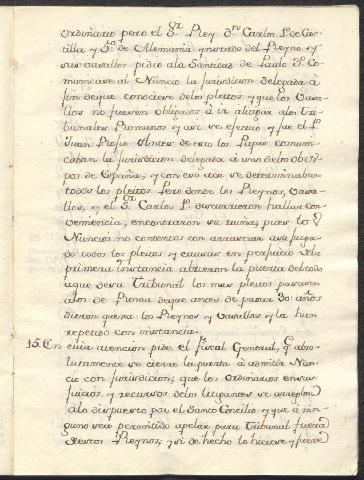 ordinario pero el S.r Rey D.n Carlos 1.º de Cas-
tilla y 5.º de Alemania instado del Reyno y
sus vasallos pidio ala Santidad de Paulo 3.º Co-
municase al Nuncio la jurisdicion delegada a
fin deque conociese delos pleitos y que los vasa-
llos no fuesen obligados à ir alitigar alos Tri-
bunales Romanos y asi se efectuo y fue el 1.º
Juan Antes de esto los Papas comuni-
caban la jurisdicion delegada à uno delos obis-
pos de España, y con eso aca se determinaban
todos los pleitos. Pero donde los Reynos, vasa-
llos, y el S.or Carlos 1.º discurrieron hallar con-
veniencia, encontraron su ruina; pues los
Nuncios no contentos con arrastrar a su juzga-
do todos los pleitos y causas en perjuicio dela
primera instancia abrieron la puerta del todo
aque de su Tribunal los mas pleitos pasasen
alos de Roma deque antes de pasar 30: años
dieron quexa los Reynos y vasallos y la han
repetido con instancia.
15. En cuia atencion pide el Fiscal General, q.e abso-
lutamente se cierre la puerta à admitir Nun-
cio con jurisdicion; que los ordinarios en sus
juicios, y recursos delos litigantes se arreglen
alo dispuesto por el Santo Concilio y que à nin-
guno sea permitido apelar para Tribunal fuera
destos Reynos; y si de hecho lo hiciese y fuere